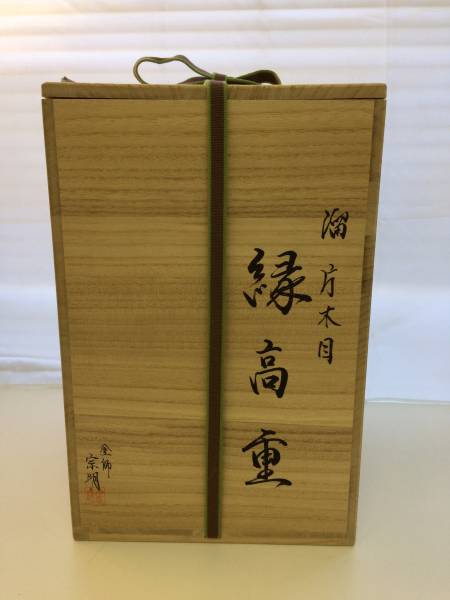 溜 片木目
縁高重
塗師
宗明